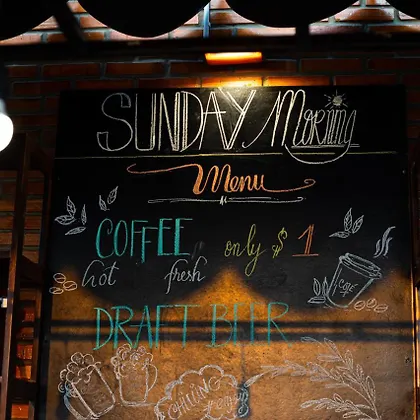 SUNDAY Morning
Menu
COFFEE only $ 1
hot fresh
DRAFT BEER
CHILLING